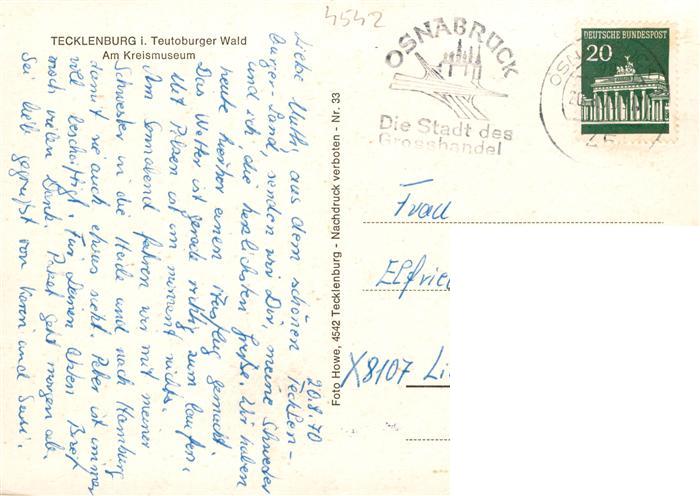 4542
TECKLENBURG i. Teutoburger Wald
Am Kreismuseum
OSNABRÜCK
Die Stadt des
Grosshandel
DEUTSCHE BUNDESPOST
20
OSN
20.
45
Foto Howe, 4542 Tecklenburg - Nachdruck verboten - Nr. 33
20.8.70
Liebe Mutti, aus dem schönen Tecklen-
burger-Land, senden wir Dir, meine Schwester
und ich, die herzlichsten Grüße. Wir haben
heute hierher einen Ausflug gemacht.
Das Wetter ist gerade richtig zum laufen.
Mit Pilzen ist im moment nichts.
Am Sonnabend fahren wir mit meiner
Schwester in die Heide und nach Hamburg
damit sie auch etwas sieht. Peter ist immer
voll beschäftigt. Für Deinen lieben Brief
noch vielen Dank. Paket geht morgen ab.
Sei lieb gegrüßt von Karin und
Frau
Elfrie
X8107 Li